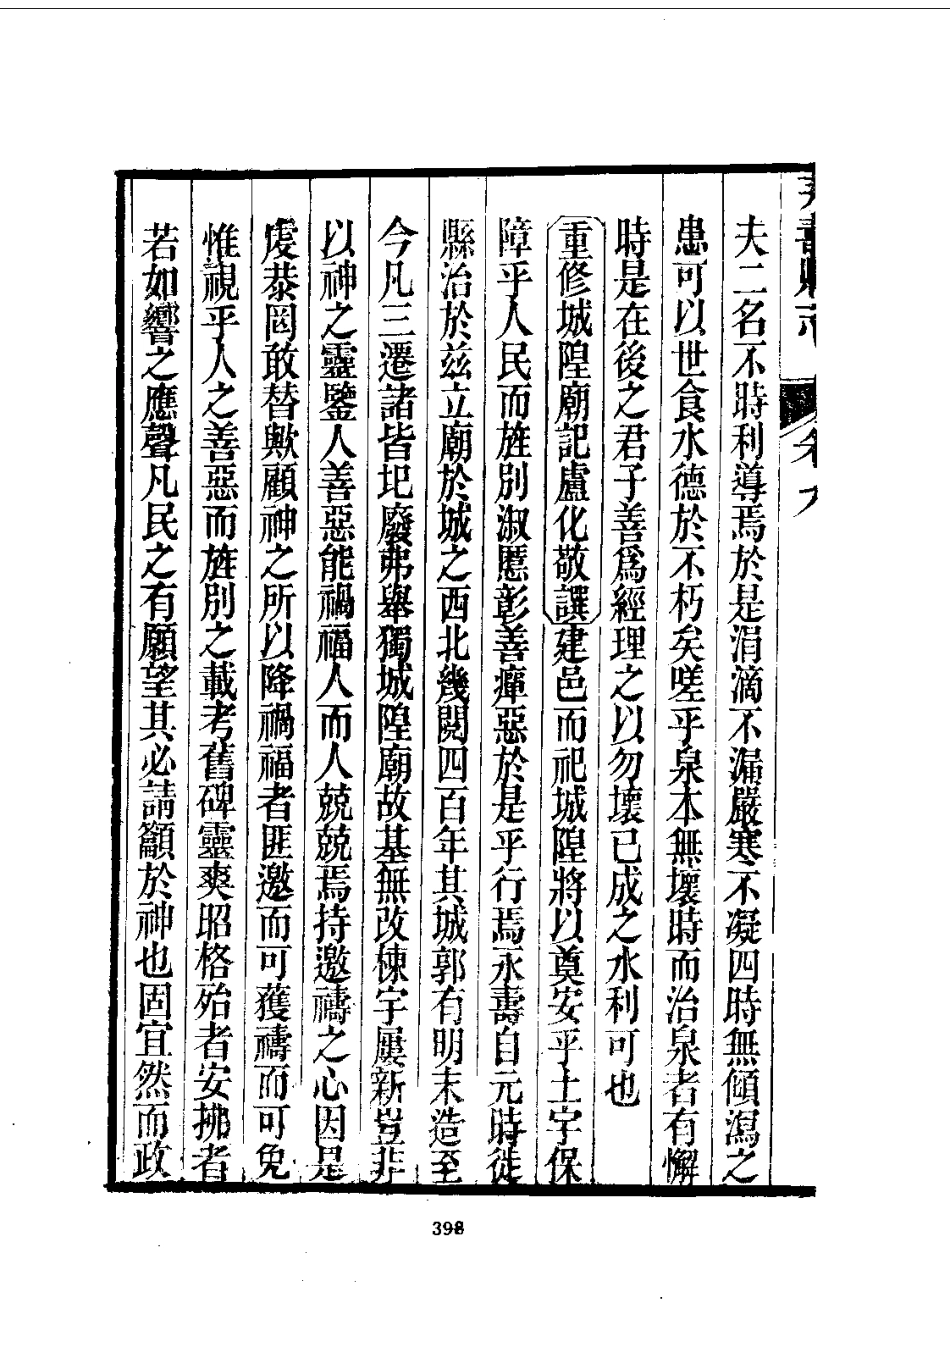 永壽縣志
卷九
夫二名不時利導焉於是涓滴不漏嚴寒不凝四時無傾瀉之
患可以世食水德於不朽矣嗟乎泉本無壞時而治泉者有懈
時是在後之君子善爲經理之以勿壞已成之水利可也
重修城隍廟記盧化敬譔建邑而祀城隍將以奠安乎土宇保
障乎人民而旌別淑慝彰善癉惡於是乎行焉永壽自元時徙
縣治於茲立廟於城之西北幾閱四百年其城郭有明末造至
今凡三遷諸皆圮廢弗舉獨城隍廟故基無改棟宇屢新豈非
以神之靈鑒人善惡能禍福人而人兢兢焉持邀禱之心因是
虔恭罔敢替歟顧神之所以降禍福者匪邀而可獲禱而可免
惟視乎人之善惡而旌別之載考舊碑靈爽昭格殆者安拂者
若如響之應聲凡民之有願望其必請籲於神也固宜然而政
398